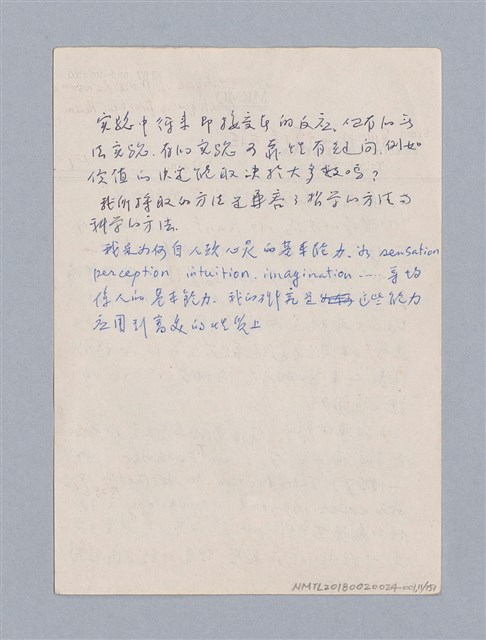 实验中得来即接受的反应,但有的方
法实验,有的实验可靠性有疑问,例如
价值的决定能取决於大多数吗?
我所採取的方法是兼容了哲学的方法与
科学的方法.
我是为何自人类心灵的基本能力,为 sensation
perception intuition, imagination …… 等均
係人的基本能力,我的研究是这些能力
应用到高度的性质上
NMTL20180020024-001,11/151